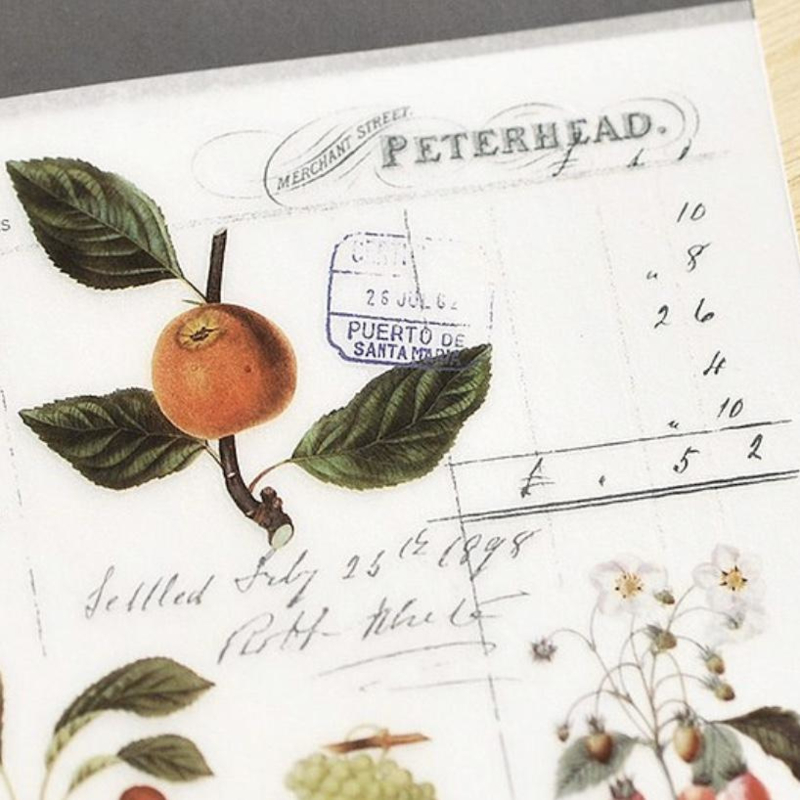 MERCHANT STREET.
PETERHEAD.
£ s d
s
10
" 8
2 6
4
" 10
£ . 5 2
26 JUL 62
PUERTO DE
SANTA MARIA
Settled July 25th 1898
Robt